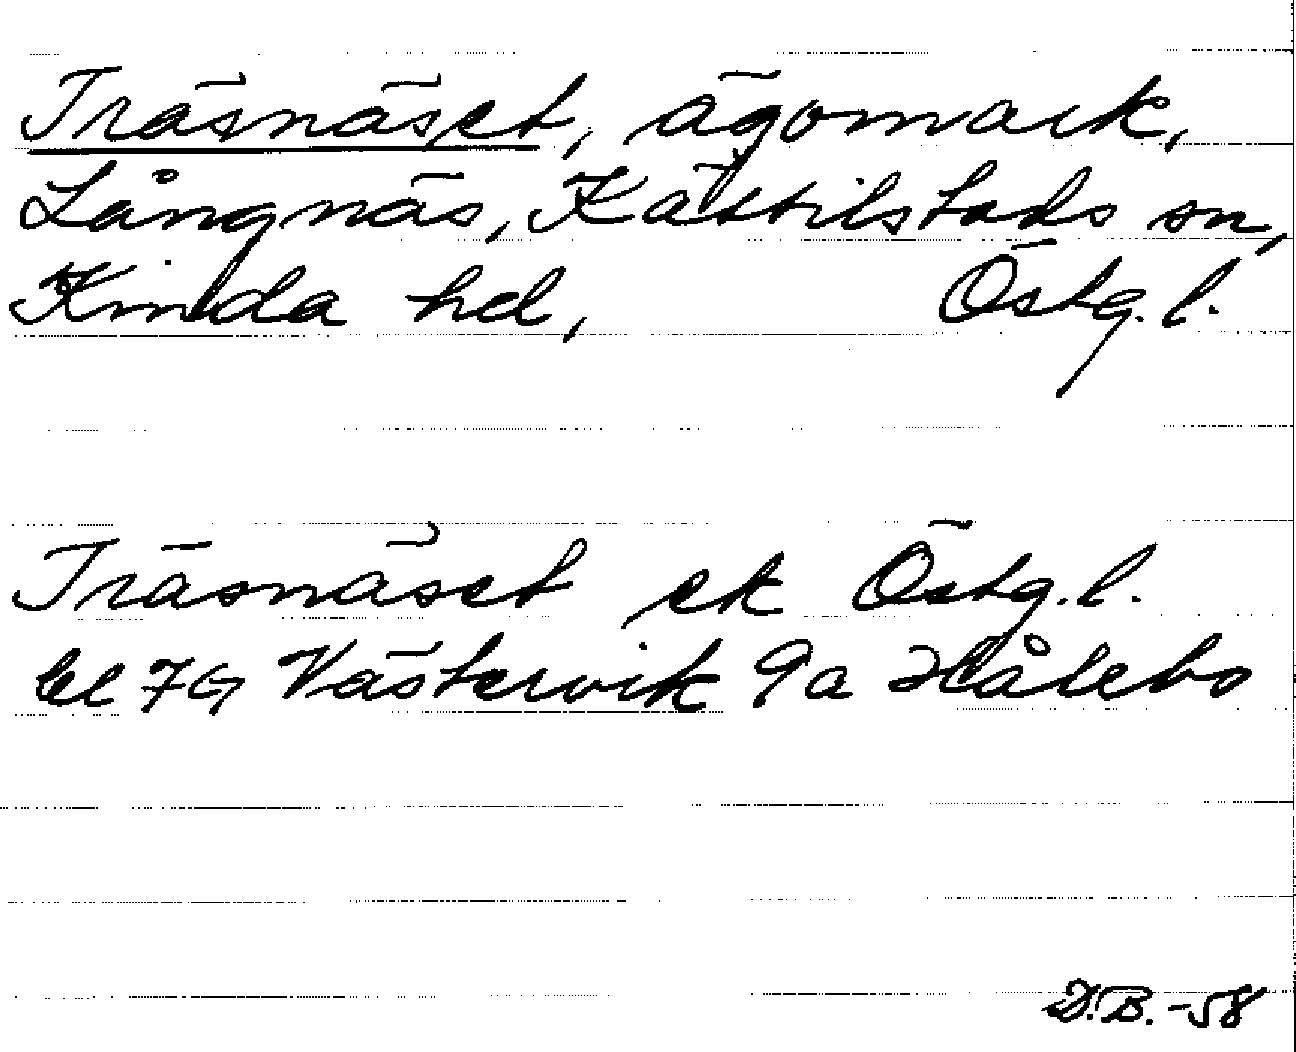 Träsnäset, ägomark,
Långnäs, Kättilstads sn,
Kinda hd, Östg. l.
Träsnäset ek Östg. l.
bl 7G Västervik 9a Hålebo
D.B. -58